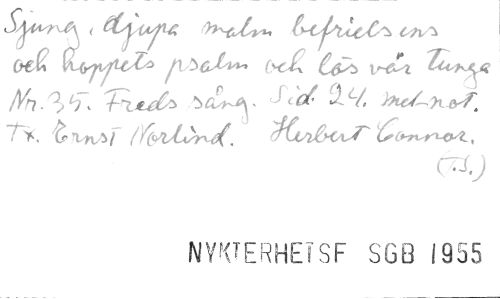 Sjung, djupa malm befrielsens
och hoppets psalm och lös vår tunga
Nr. 35. Fredssång. Sid. 24. met not.
Tx. Ernst Norlind. Herbert Connor.
(T.S.)
NYKTERHETSF SGB 1955